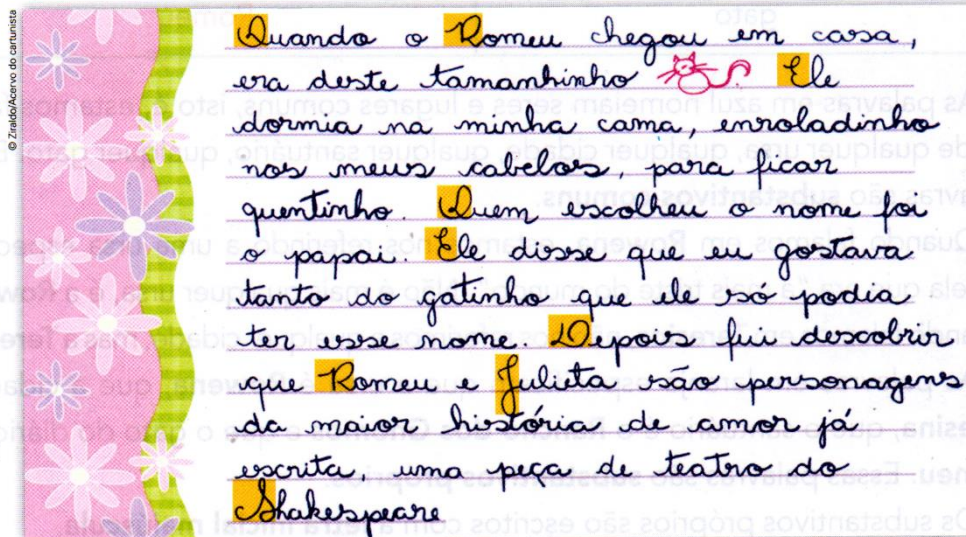 © Ziraldo/Acervo do cartunista
Quando o Romeu chegou em casa,
era deste tamanhinho Ele
dormia na minha cama, enroladinho
nos meus cabelos, para ficar
quentinho. Quem escolheu o nome foi
o papai. Ele disse que eu gostava
tanto do gatinho que ele só podia
ter esse nome. Depois fui descobrir
que Romeu e Julieta são personagens
da maior história de amor já
escrita, uma peça de teatro do
Shakespeare